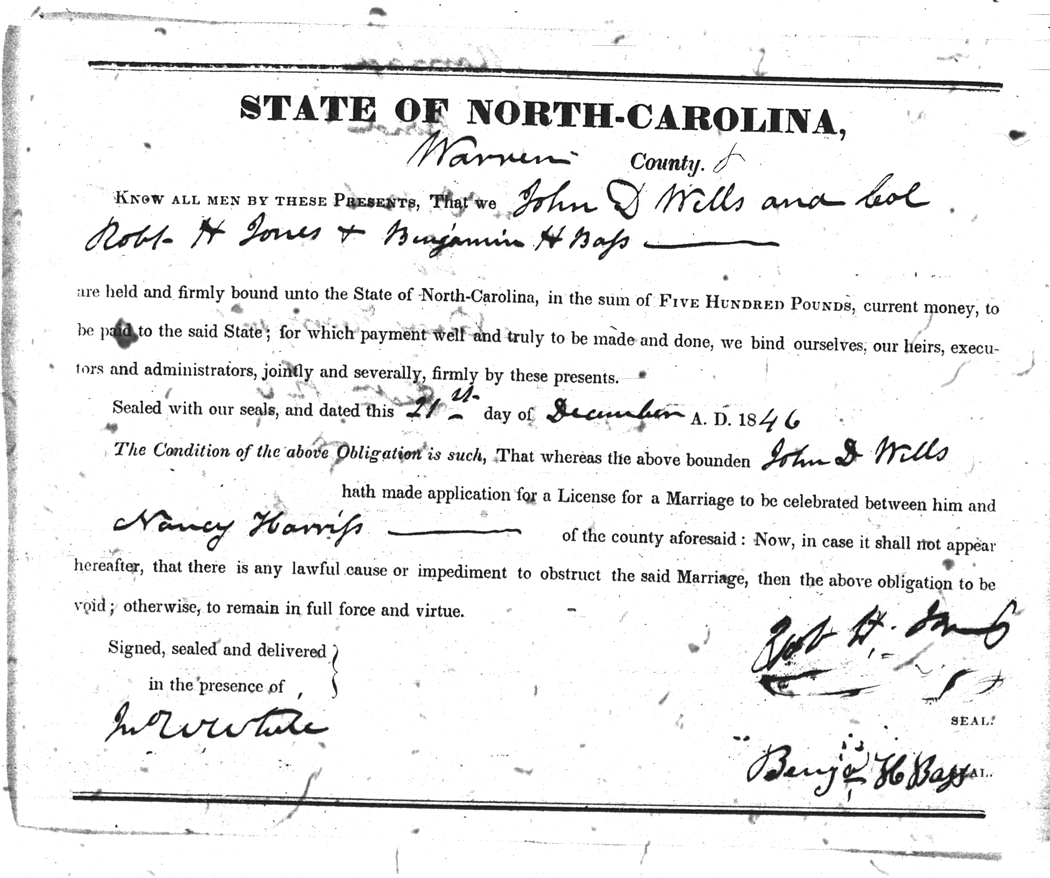 STATE OF NORTH-CAROLINA,
Warren County.
KNOW ALL MEN BY THESE PRESENTS, That we John D Wells and Col
Robt H Jones + Benjamin H Bass
are held and firmly bound unto the State of North-Carolina, in the sum of FIVE HUNDRED POUNDS, current money, to
be paid to the said State; for which payment well and truly to be made and done, we bind ourselves, our heirs, execu-
tors and administrators, jointly and severally, firmly by these presents.
Sealed with our seals, and dated this 21st day of December A. D. 1846
The Condition of the above Obligation is such, That whereas the above bounden John D Wells
hath made application for a License for a Marriage to be celebrated between him and
Nancy Harriss of the county aforesaid: Now, in case it shall not appear
hereafter, that there is any lawful cause or impediment to obstruct the said Marriage, then the above obligation to be
void; otherwise, to remain in full force and virtue.
Rob H. Jones
Signed, sealed and delivered
in the presence of
SEAL.
Jno W White
Benja H Bass